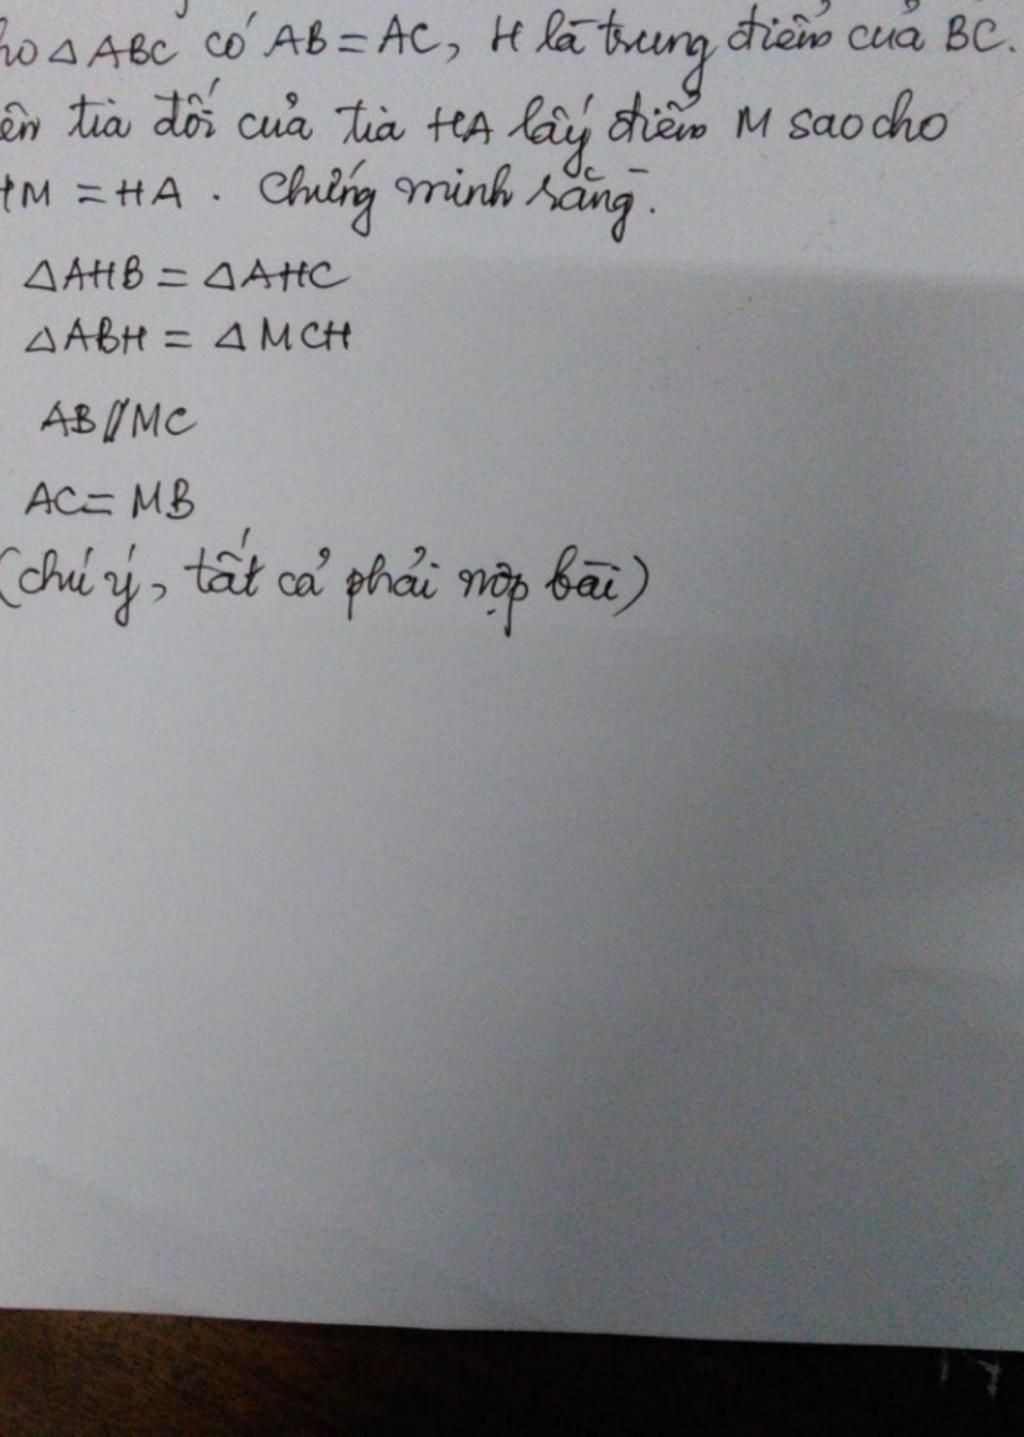 ho △ABC có AB = AC, H là trung điểm của BC.
ên tia đối của tia HA lấy điểm M sao cho
HM = HA. Chứng minh rằng.
△AHB = △AHC
△ABH = △MCH
AB // MC
AC = MB
(chú ý, tất cả phải nộp bài)